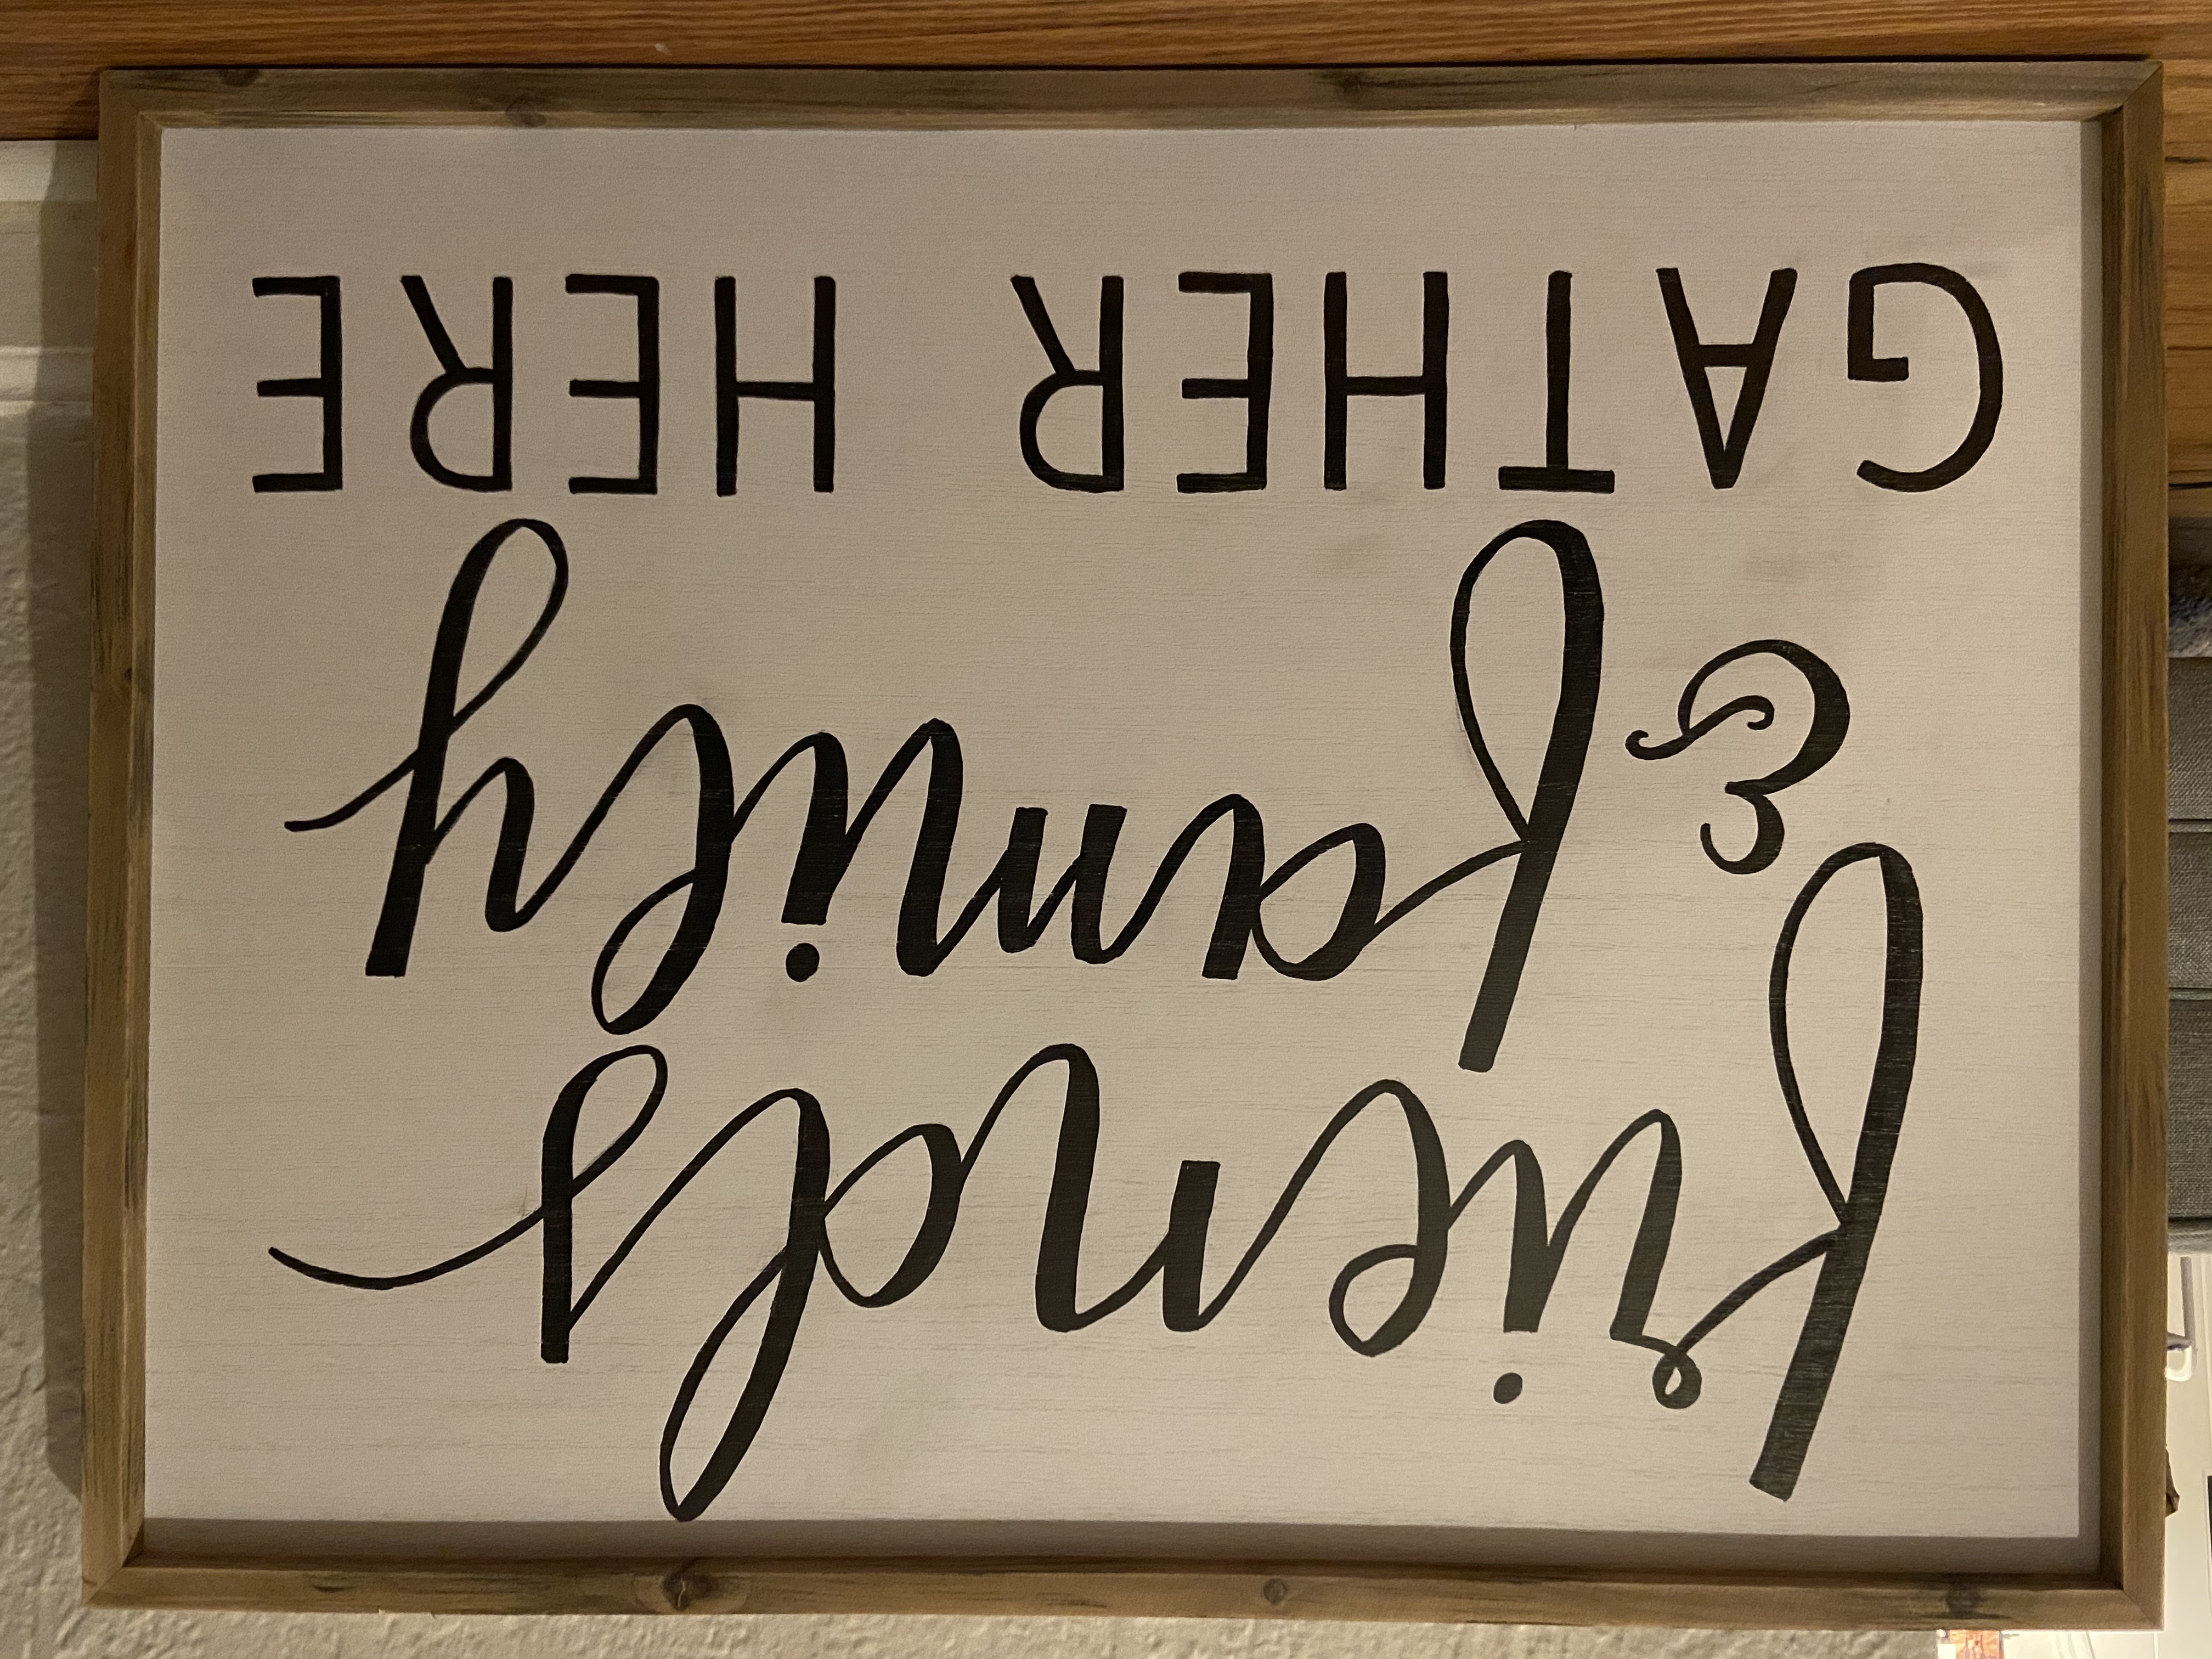 friends
& family
GATHER HERE